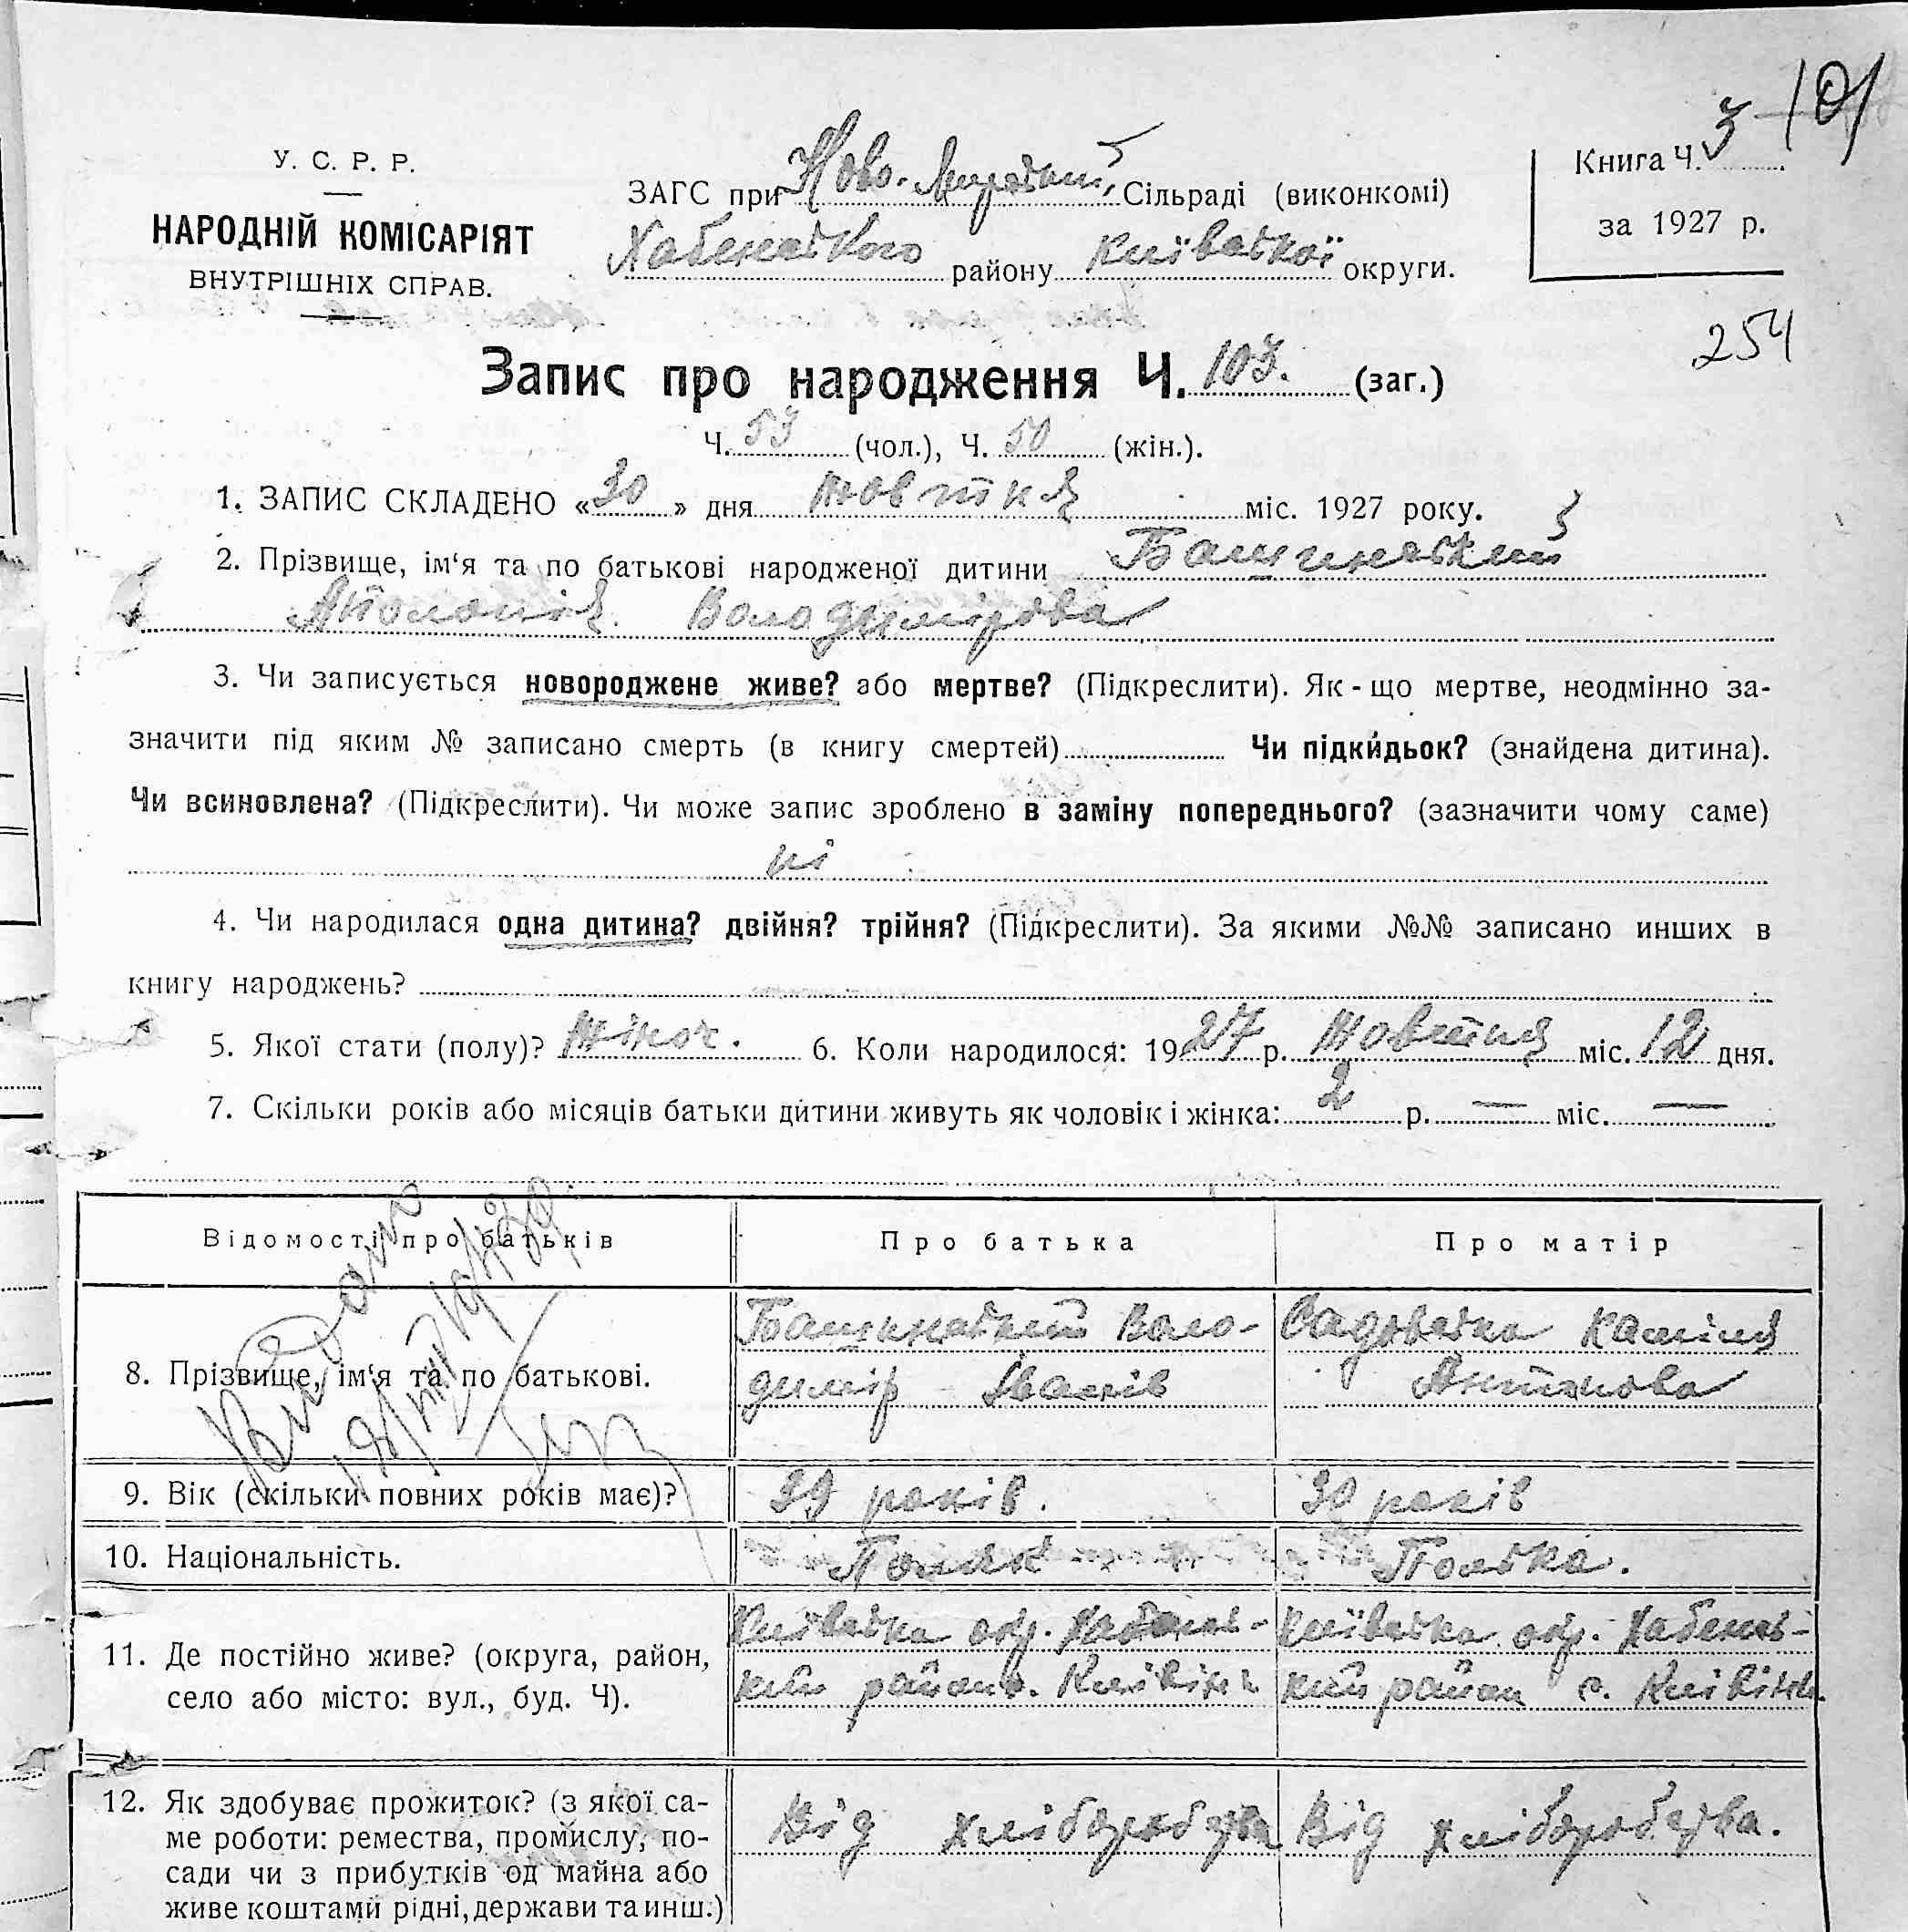 101
У. С. Р. Р.
НАРОДНІЙ КОМІСАРІЯТ
ВНУТРІШНІХ СПРАВ.
ЗАГС при Ново-Мирській Сільраді (виконкомі)
Хабенського району Київської округи.
Книга Ч. 3
за 1927 р.
254
Запис про народження Ч. 103. (заг.)
Ч. 53 (чол.), Ч. 50 (жін.).
1. ЗАПИС СКЛАДЕНО «30» дня жовтня міс. 1927 року.
2. Прізвище, ім‘я та по батькові народженої дитини Башинський
Аполонія Володимірова
3. Чи записується новороджене живе? або мертве? (Підкреслити). Як-що мертве, неодмінно за-
значити під яким № записано смерть (в книгу смертей) Чи підкидьок? (знайдена дитина).
Чи всиновлена? (Підкреслити). Чи може запис зроблено в заміну попереднього? (зазначити чому саме)
ні
4. Чи народилася одна дитина? двійня? трійня? (Підкреслити). За якими №№ записано инших в
книгу народжень?
5. Якої стати (полу)? жіноч. 6. Коли народилося: 1927 р. жовтня міс. 12 дня.
7. Скільки років або місяців батьки дитини живуть як чоловік і жінка: 2 р. — міс. —
Відомості про батьків Про батька Про матір
Видано
8. Прізвище, ім‘я та по батькові. Башинський Воло- Садовська Каміля
димір Іванів Антонова
9. Вік (скільки повних років має)? 39 років. 30 років
10. Національність. Поляк Полька.
11. Де постійно живе? (округа, район, Київська окр. Хабенсь- Київська окр. Хабенсь-
село або місто: вул., буд. Ч). кий район с. кий район с.
12. Як здобуває прожиток? (з якої са- Від хліборобства Від хліборобства.
ме роботи: ремества, промислу, по-
сади чи з прибутків од майна або
живе коштами рідні, держави та инш.)